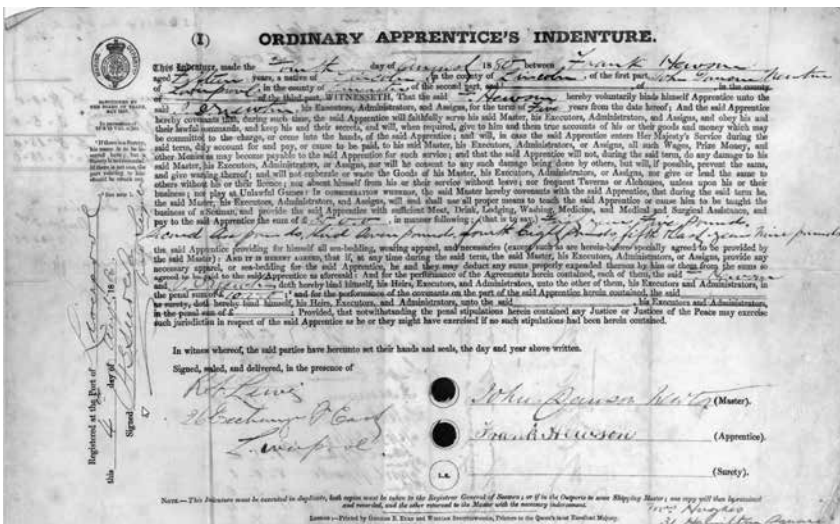 (I) ORDINARY APPRENTICE'S INDENTURE.
This Indenture, made the Fourth day of August 1880 between Frank Hewson
aged Eighteen years, a native of Lincoln, in the county of Lincoln, of the first part, John Janson
of Liverpool, in the county of of the second part, and in the county
of of the third part, WITNESSETH, That the said Hewson hereby voluntarily binds himself Apprentice unto the
said his Executors, Administrators, and Assigns, for the term of Five years from the date hereof; And the said Apprentice
hereby covenants that, during such time, the said Apprentice will faithfully serve his said Master, his Executors, Administrators, and Assigns, and obey his and
their lawful commands, and keep his and their secrets, and will, when required, give to him and them true accounts of his or their goods and money which may
be committed to the charge, or come into the hands, of the said Apprentice; and will, in case the said Apprentice enters Her Majesty's Service during the
said term, duly account for and pay, or cause to be paid, to his said Master, his Executors, Administrators, or Assigns, all such Wages, Prize Money, and
other Monies as may become payable to the said Apprentice for such service; and that the said Apprentice will not, during the said term, do any damage to his
said Master, his Executors, Administrators, or Assigns, nor will he consent to any such damage being done by others, but will, if possible, prevent the same,
and give warning thereof; and will not embezzle or waste the Goods of his Master, his Executors, Administrators, or Assigns, nor give or lend the same to
others without his or their licence; nor absent himself from his or their service without leave; nor frequent Taverns or Alehouses, unless upon his or their
business; nor play at Unlawful Games: IN CONSIDERATION WHEREOF, the said Master hereby covenants with the said Apprentice, that during the said term he,
the said Master, his Executors, Administrators, and Assigns, will and shall use all proper means to teach the said Apprentice or cause him to be taught the
business of a Seaman, and provide the said Apprentice with sufficient Meat, Drink, Lodging, Washing, Medicine, and Medical and Surgical Assistance, and
pay to the said Apprentice the sum of £ in manner following; (that is to say,)
Second Six pounds, third Seven pounds, fourth Eight pounds, fifth & last year Nine pounds
the said Apprentice providing for himself all sea-bedding, wearing apparel, and necessaries (except such as are herein-before specially agreed to be provided by
the said Master): AND IT IS HEREBY AGREED, that if, at any time during the said term, the said Master, his Executors, Administrators, or Assigns, provide any
necessary apparel, or sea-bedding for the said Apprentice, he and they may deduct any sums properly expended thereon by him or them from the sums so
agreed to be paid to the said Apprentice as aforesaid: And for the performance of the Agreements herein contained, each of them, the said
and doth hereby bind himself, his Heirs, Executors, and Administrators, unto the other of them, his Executors and Administrators, in
the penal sum of £ ; and for the performance of the covenants on the part of the said Apprentice herein contained, the said
as surety, doth hereby bind himself, his Heirs, Executors, and Administrators, unto the said his Executors and Administrators,
in the penal sum of £ : Provided, that notwithstanding the penal stipulations herein contained any Justice or Justices of the Peace may exercise
such jurisdiction in respect of the said Apprentice as he or they might have exercised if no such stipulations had been herein contained.
In witness whereof, the said parties have hereunto set their hands and seals, the day and year above written.
Signed, sealed, and delivered, in the presence of
R F Lewis
26 Exchange St East
Liverpool
John Janson (Master).
Frank Hewson (Apprentice).
L.S. (Surety).
NOTE.—This Indenture must be executed in duplicate, both copies must be taken to the Registrar General of Seamen; or if in the Outports to some Shipping Master; one copy will then be retained
and recorded, and the other returned to the Master with the necessary indorsement.
LONDON:—Printed by GEORGE E. EYRE and WILLIAM SPOTTISWOODE, Printers to the Queen's most Excellent Majesty.
Hughes
Registered at the Port of Liverpool
this 4 day of Aug 188
Signed